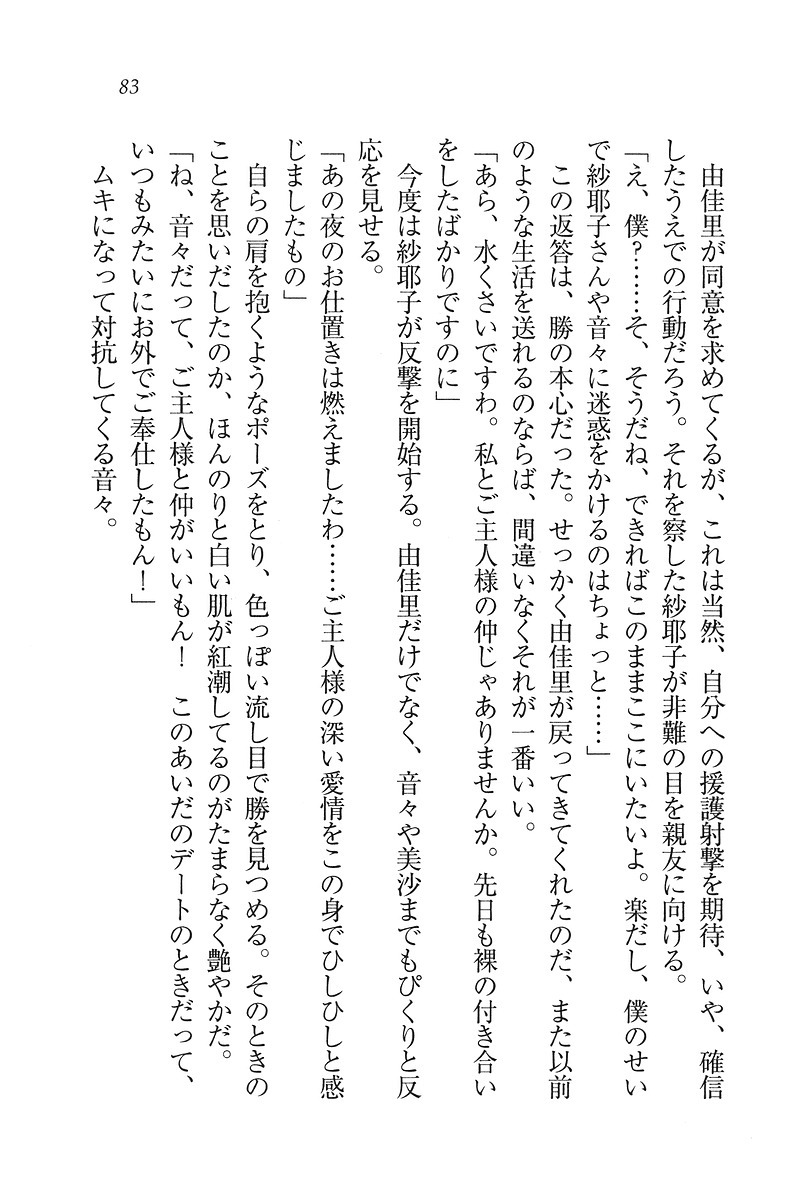 83
由佳里が同意を求めてくるが、これは当然、自分への援護射撃を期待、いや、確信
したうえでの行動だろう。それを察した紗耶子が非難の目を親友に向ける。
「え、僕？……そ、そうだね、できればこのままここにいたいよ。楽だし、僕のせい
で紗耶子さんや音々に迷惑をかけるのはちょっと……」
この返答は、勝の本心だった。せっかく由佳里が戻ってきてくれたのだ、また以前
のような生活を送れるのならば、間違いなくそれが一番いい。
「あら、水くさいですわ。私とご主人様の仲じゃありませんか。先日も裸の付き合い
をしたばかりですのに」
今度は紗耶子が反撃を開始する。由佳里だけでなく、音々や美沙までもぴくりと反
応を見せる。
「あの夜のお仕置きは燃えましたわ……ご主人様の深い愛情をこの身でひしひしと感
じましたもの」
自らの肩を抱くようなポーズをとり、色っぽい流し目で勝を見つめる。そのときの
ことを思いだしたのか、ほんのりと白い肌が紅潮してるのがたまらなく艶やかだ。
「ね、音々だって、ご主人様と仲がいいもん！　このあいだのデートのときだって、
いつもみたいにお外でご奉仕したもん！」
ムキになって対抗してくる音々。